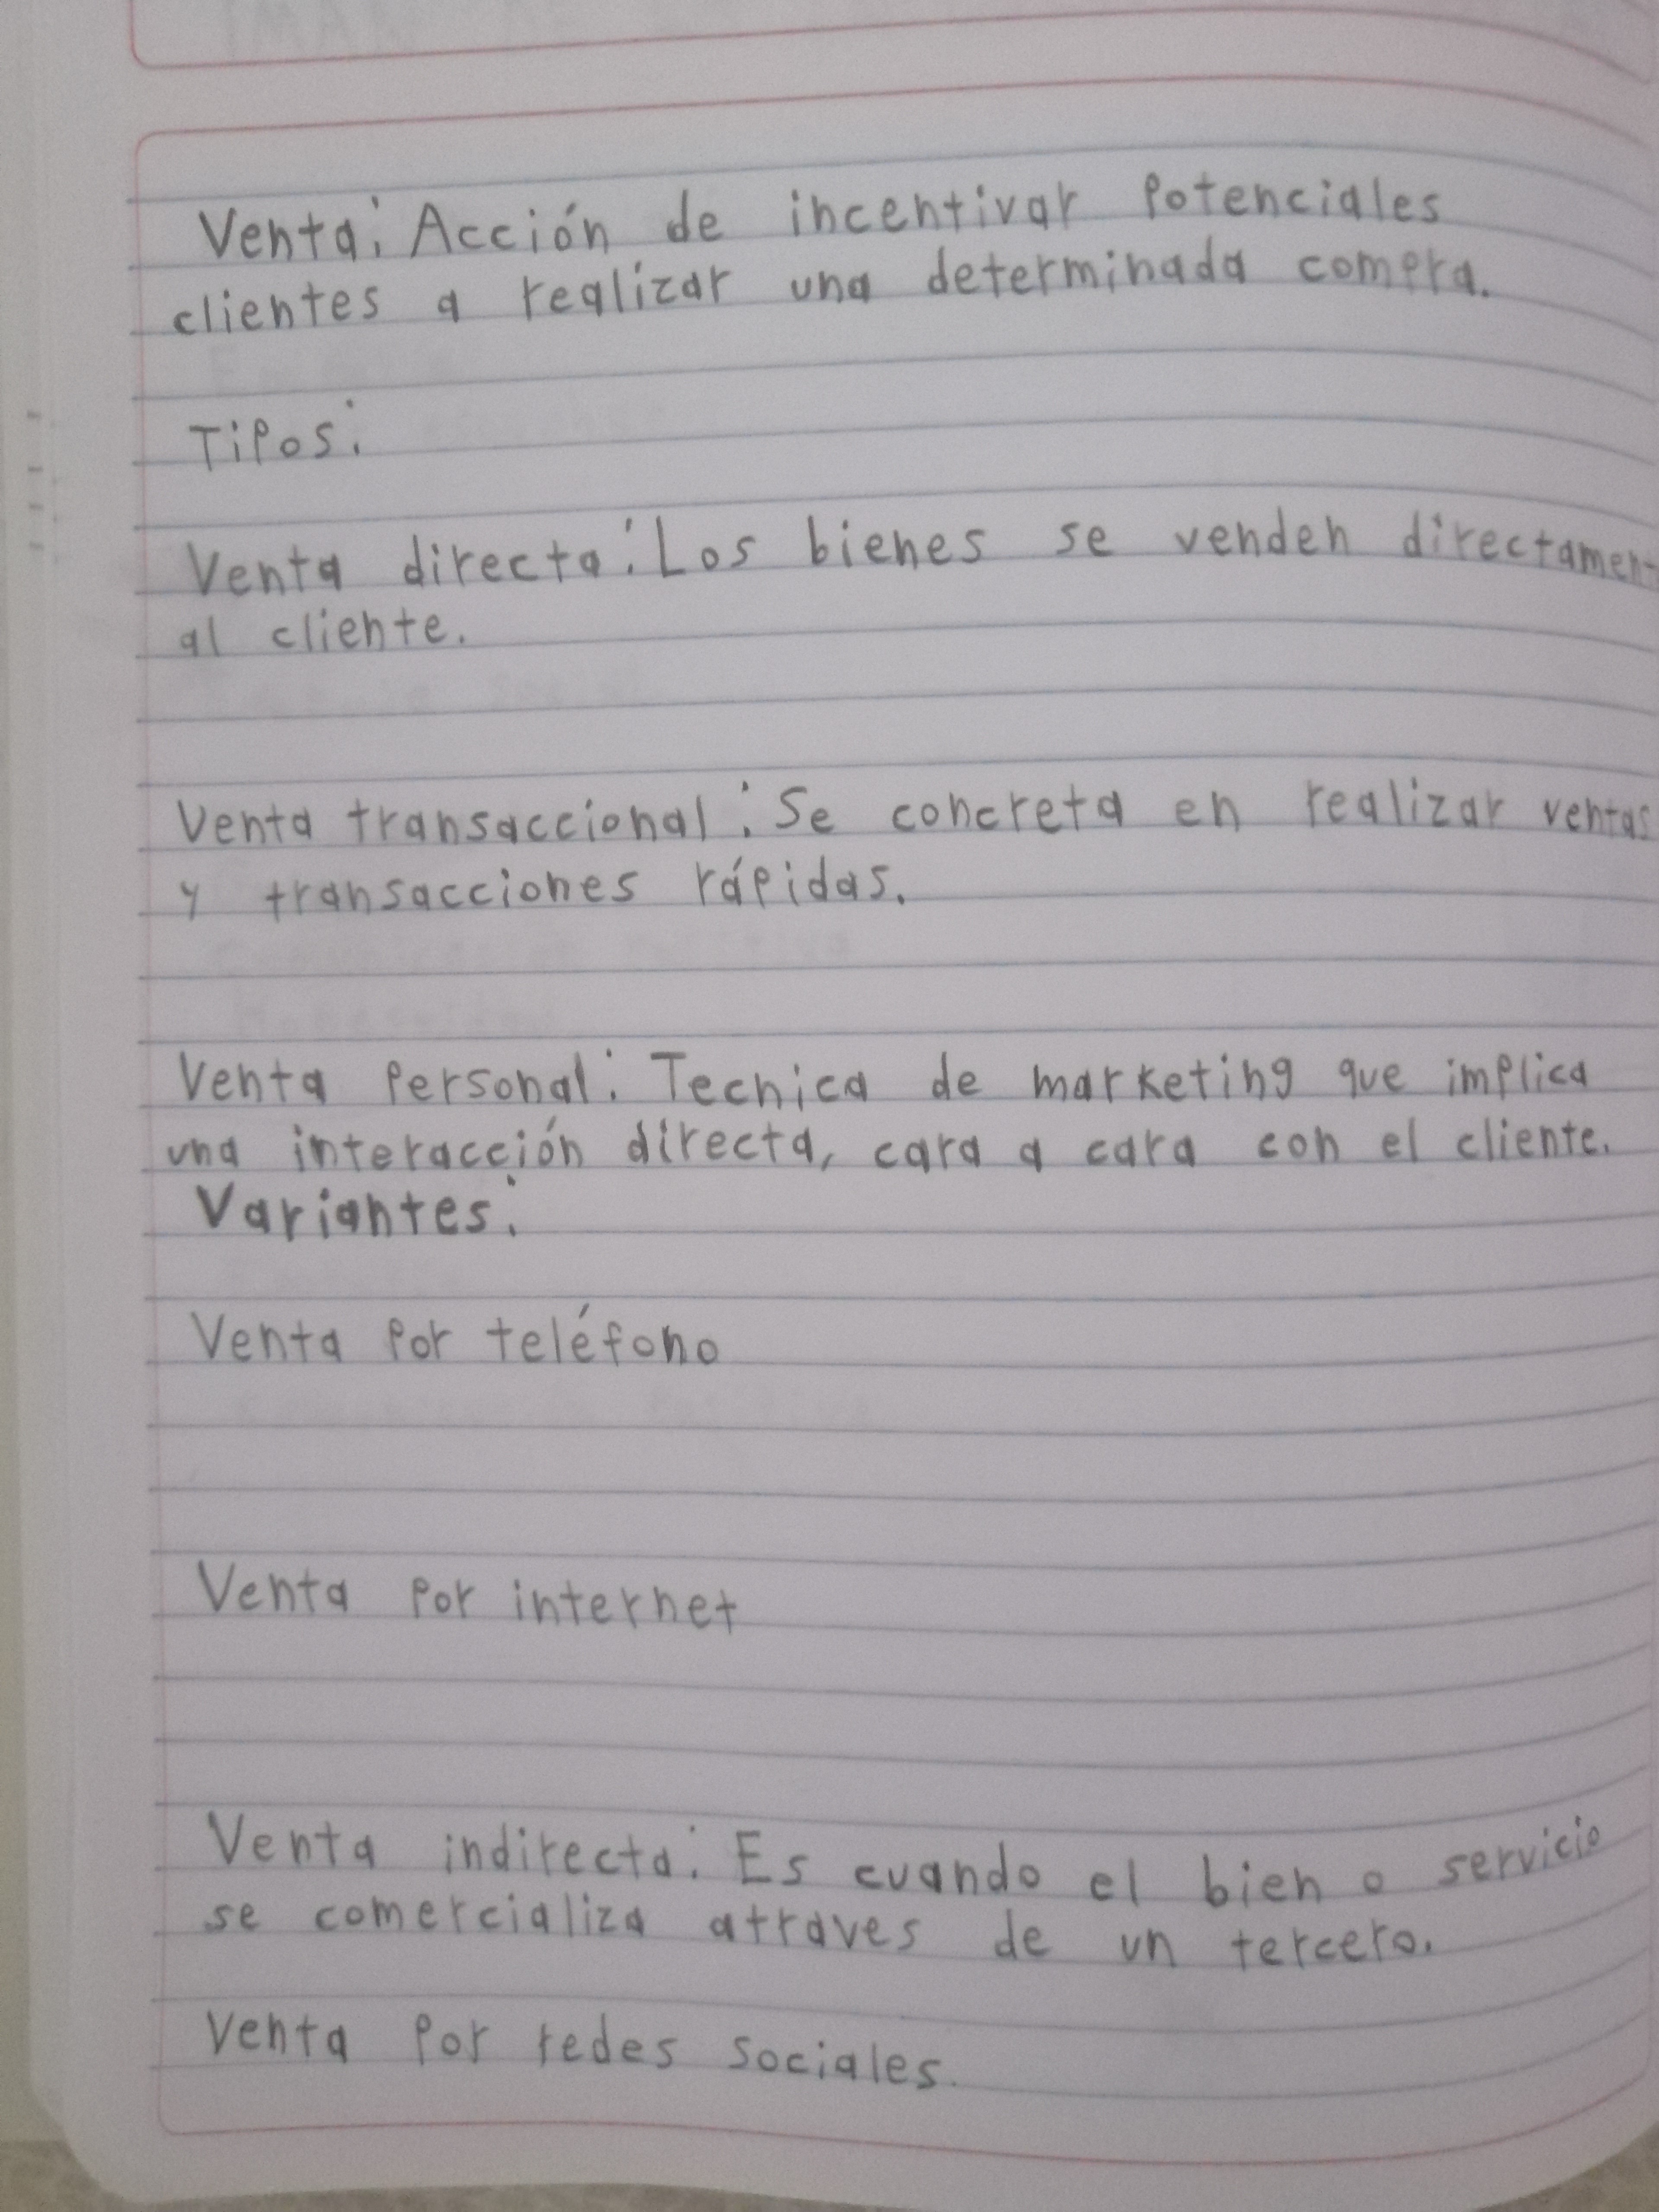 Venta: Acción de incentivar potenciales
clientes a realizar una determinada compra.
Tipos:
Venta directa: Los bienes se venden directament
al cliente.
Venta transaccional: Se concreta en realizar ventas
y transacciones rápidas.
Venta personal: Tecnica de marketing que implica
una interacción directa, cara a cara con el cliente.
Variantes:
Venta por teléfono
Venta por internet
Venta indirecta: Es cuando el bien o servicio
se comercializa atraves de un tercero.
Venta por redes sociales.